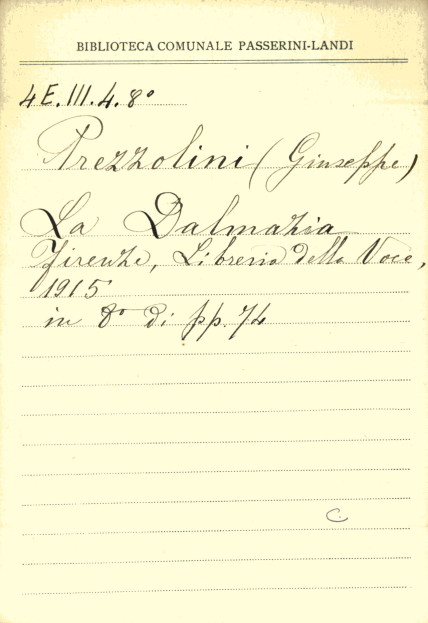 BIBLIOTECA COMUNALE PASSERINI-LANDI
4E.III.4.8°
Prezzolini (Giuseppe)
La Dalmazia
Firenze, Libreria della Voce,
1915
in 8° di pp. 74
C.